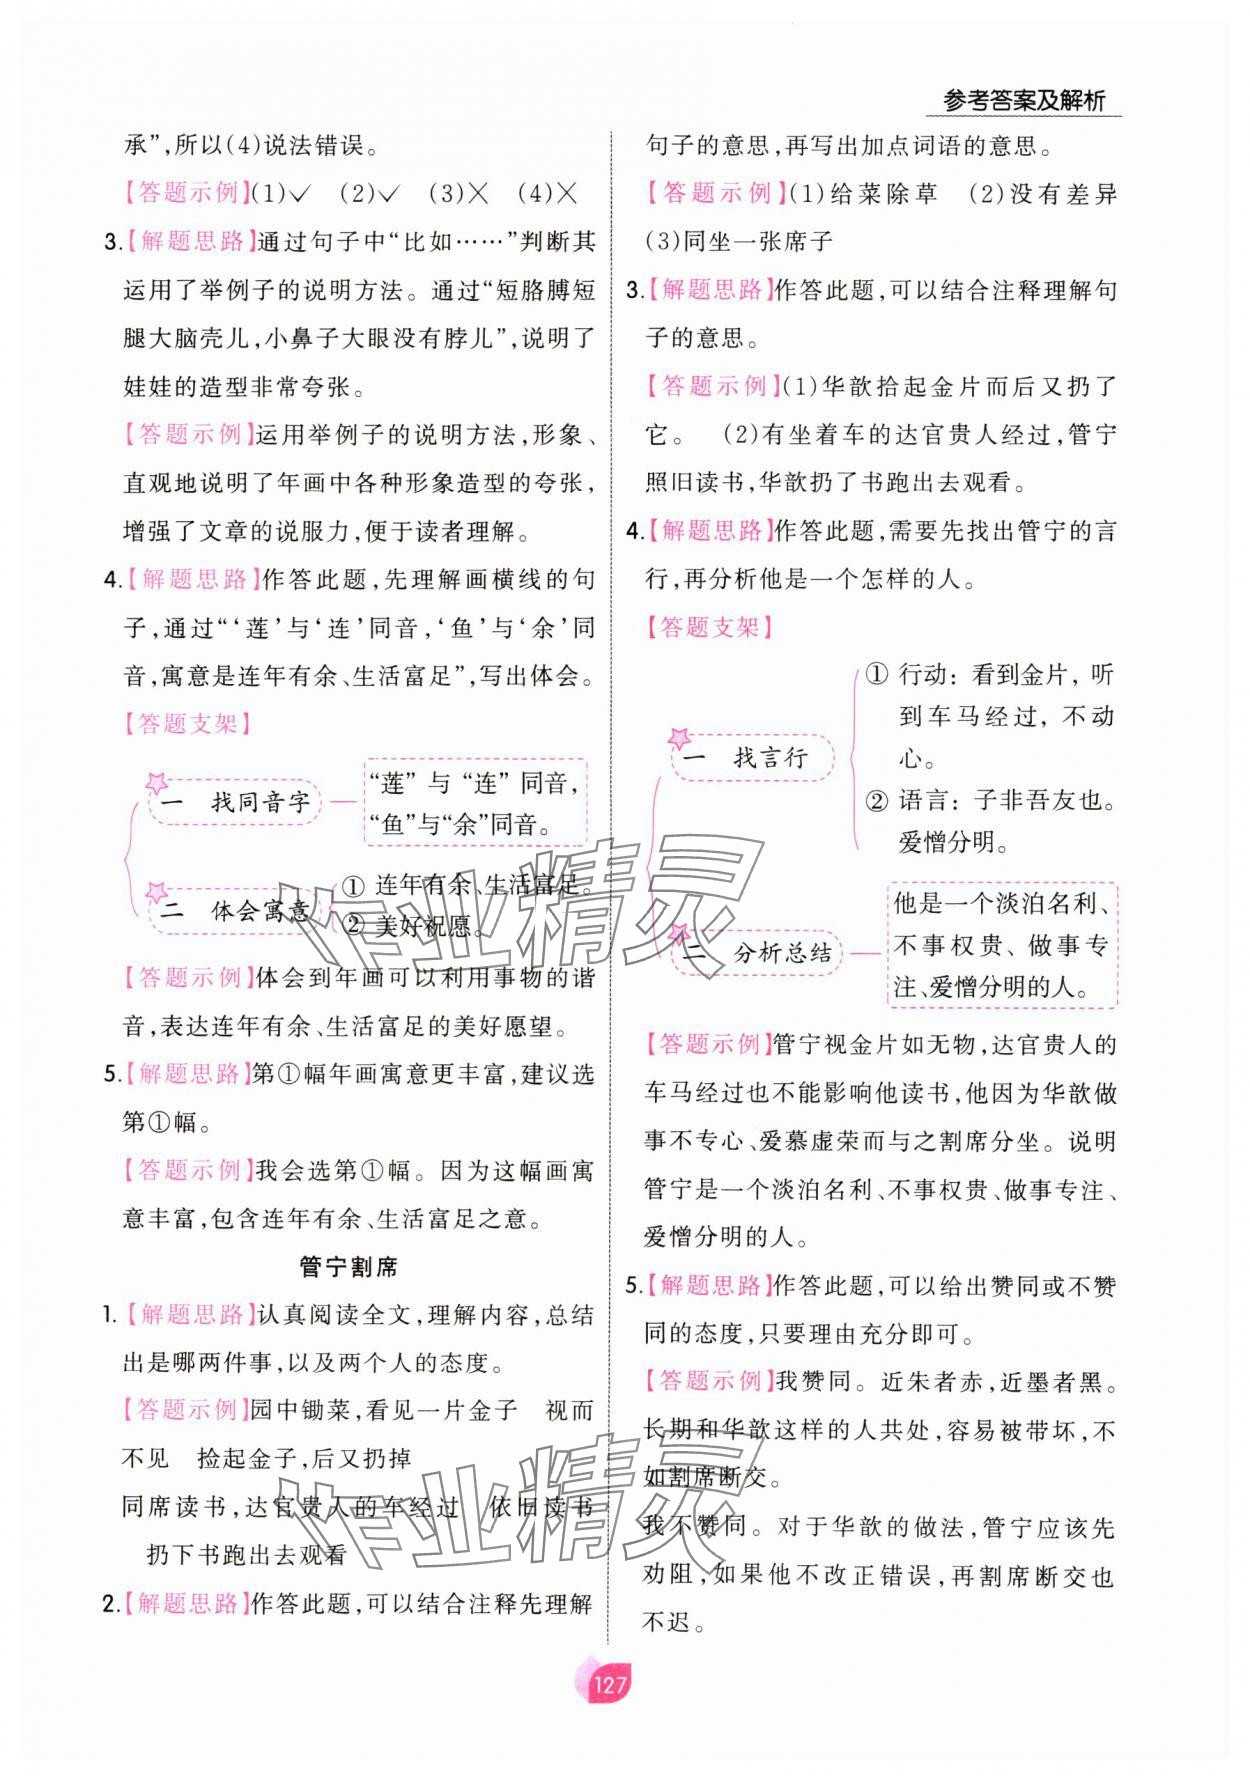 参考答案及解析
承”,所以(4)说法错误。
【答题示例】(1)✓ (2)✓ (3)✕ (4)✕
3.【解题思路】通过句子中“比如……”判断其
运用了举例子的说明方法。通过“短胳膊短
腿大脑壳儿,小鼻子大眼没有脖儿”,说明了
娃娃的造型非常夸张。
【答题示例】运用举例子的说明方法,形象、
直观地说明了年画中各种形象造型的夸张,
增强了文章的说服力,便于读者理解。
4.【解题思路】作答此题,先理解画横线的句
子,通过“‘莲’与‘连’同音,‘鱼’与‘余’同
音,寓意是连年有余、生活富足”,写出体会。
【答题支架】
一 找同音字
“莲”与“连”同音,
“鱼”与“余”同音。
二 体会寓意
① 连年有余、生活富足。
② 美好祝愿。
【答题示例】体会到年画可以利用事物的谐
音,表达连年有余、生活富足的美好愿望。
5.【解题思路】第①幅年画寓意更丰富,建议选
第①幅。
【答题示例】我会选第①幅。因为这幅画寓
意丰富,包含连年有余、生活富足之意。
管宁割席
1.【解题思路】认真阅读全文,理解内容,总结
出是哪两件事,以及两个人的态度。
【答题示例】园中锄菜,看见一片金子 视而
不见 捡起金子,后又扔掉
同席读书,达官贵人的车经过 依旧读书
扔下书跑出去观看
2.【解题思路】作答此题,可以结合注释先理解
句子的意思,再写出加点词语的意思。
【答题示例】(1)给菜除草 (2)没有差异
(3)同坐一张席子
3.【解题思路】作答此题,可以结合注释理解句
子的意思。
【答题示例】(1)华歆拾起金片而后又扔了
它。 (2)有坐着车的达官贵人经过,管宁
照旧读书,华歆扔了书跑出去观看。
4.【解题思路】作答此题,需要先找出管宁的言
行,再分析他是一个怎样的人。
【答题支架】
一 找言行
① 行动:看到金片,听
到车马经过,不动
心。
② 语言:子非吾友也。
爱憎分明。
二 分析总结
他是一个淡泊名利、
不事权贵、做事专
注、爱憎分明的人。
【答题示例】管宁视金片如无物,达官贵人的
车马经过也不能影响他读书,他因为华歆做
事不专心、爱慕虚荣而与之割席分坐。说明
管宁是一个淡泊名利、不事权贵、做事专注、
爱憎分明的人。
5.【解题思路】作答此题,可以给出赞同或不赞
同的态度,只要理由充分即可。
【答题示例】我赞同。近朱者赤,近墨者黑。
长期和华歆这样的人共处,容易被带坏,不
如割席断交。
我不赞同。对于华歆的做法,管宁应该先
劝阻,如果他不改正错误,再割席断交也
不迟。
作业精灵
作业精灵
127